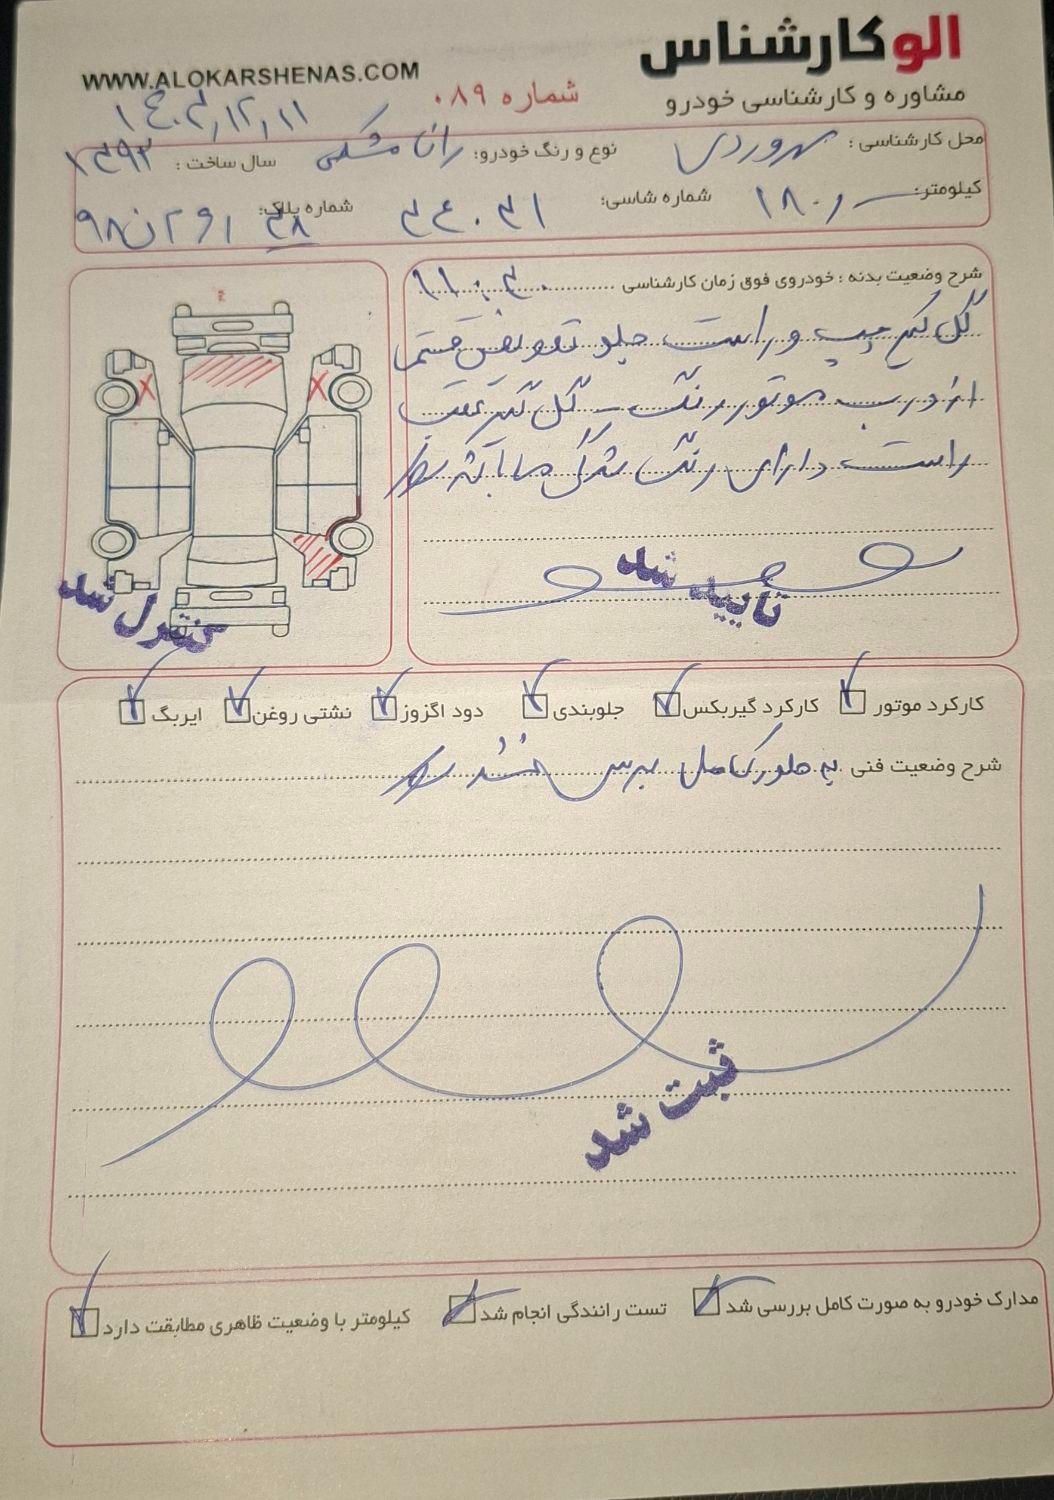 الوکارشناس
مشاوره و کارشناسی خودرو
WWW.ALOKARSHENAS.COM
شماره ۰۸۹
محل کارشناسی : سهروردی نوع و رنگ خودرو: رانا مشکی سال ساخت : ۱۳۹۲
کیلومتر: شماره شاسی: شماره پلاک:
شرح وضعیت بدنه : خودروی فوق زمان کارشناسی
گل گیر چپ و راست جلو تعویض قسمتی
از درب موتور رنگ - گل گیر عقب
راست دارای رنگ
تایید شد
کنترل شد
کارکرد موتور کارکرد گیربکس جلوبندی دود اگزوز نشتی روغن ایربگ
شرح وضعیت فنی به طور کامل بررسی شد
ثبت شد
مدارک خودرو به صورت کامل بررسی شد تست رانندگی انجام شد کیلومتر با وضعیت ظاهری مطابقت دارد